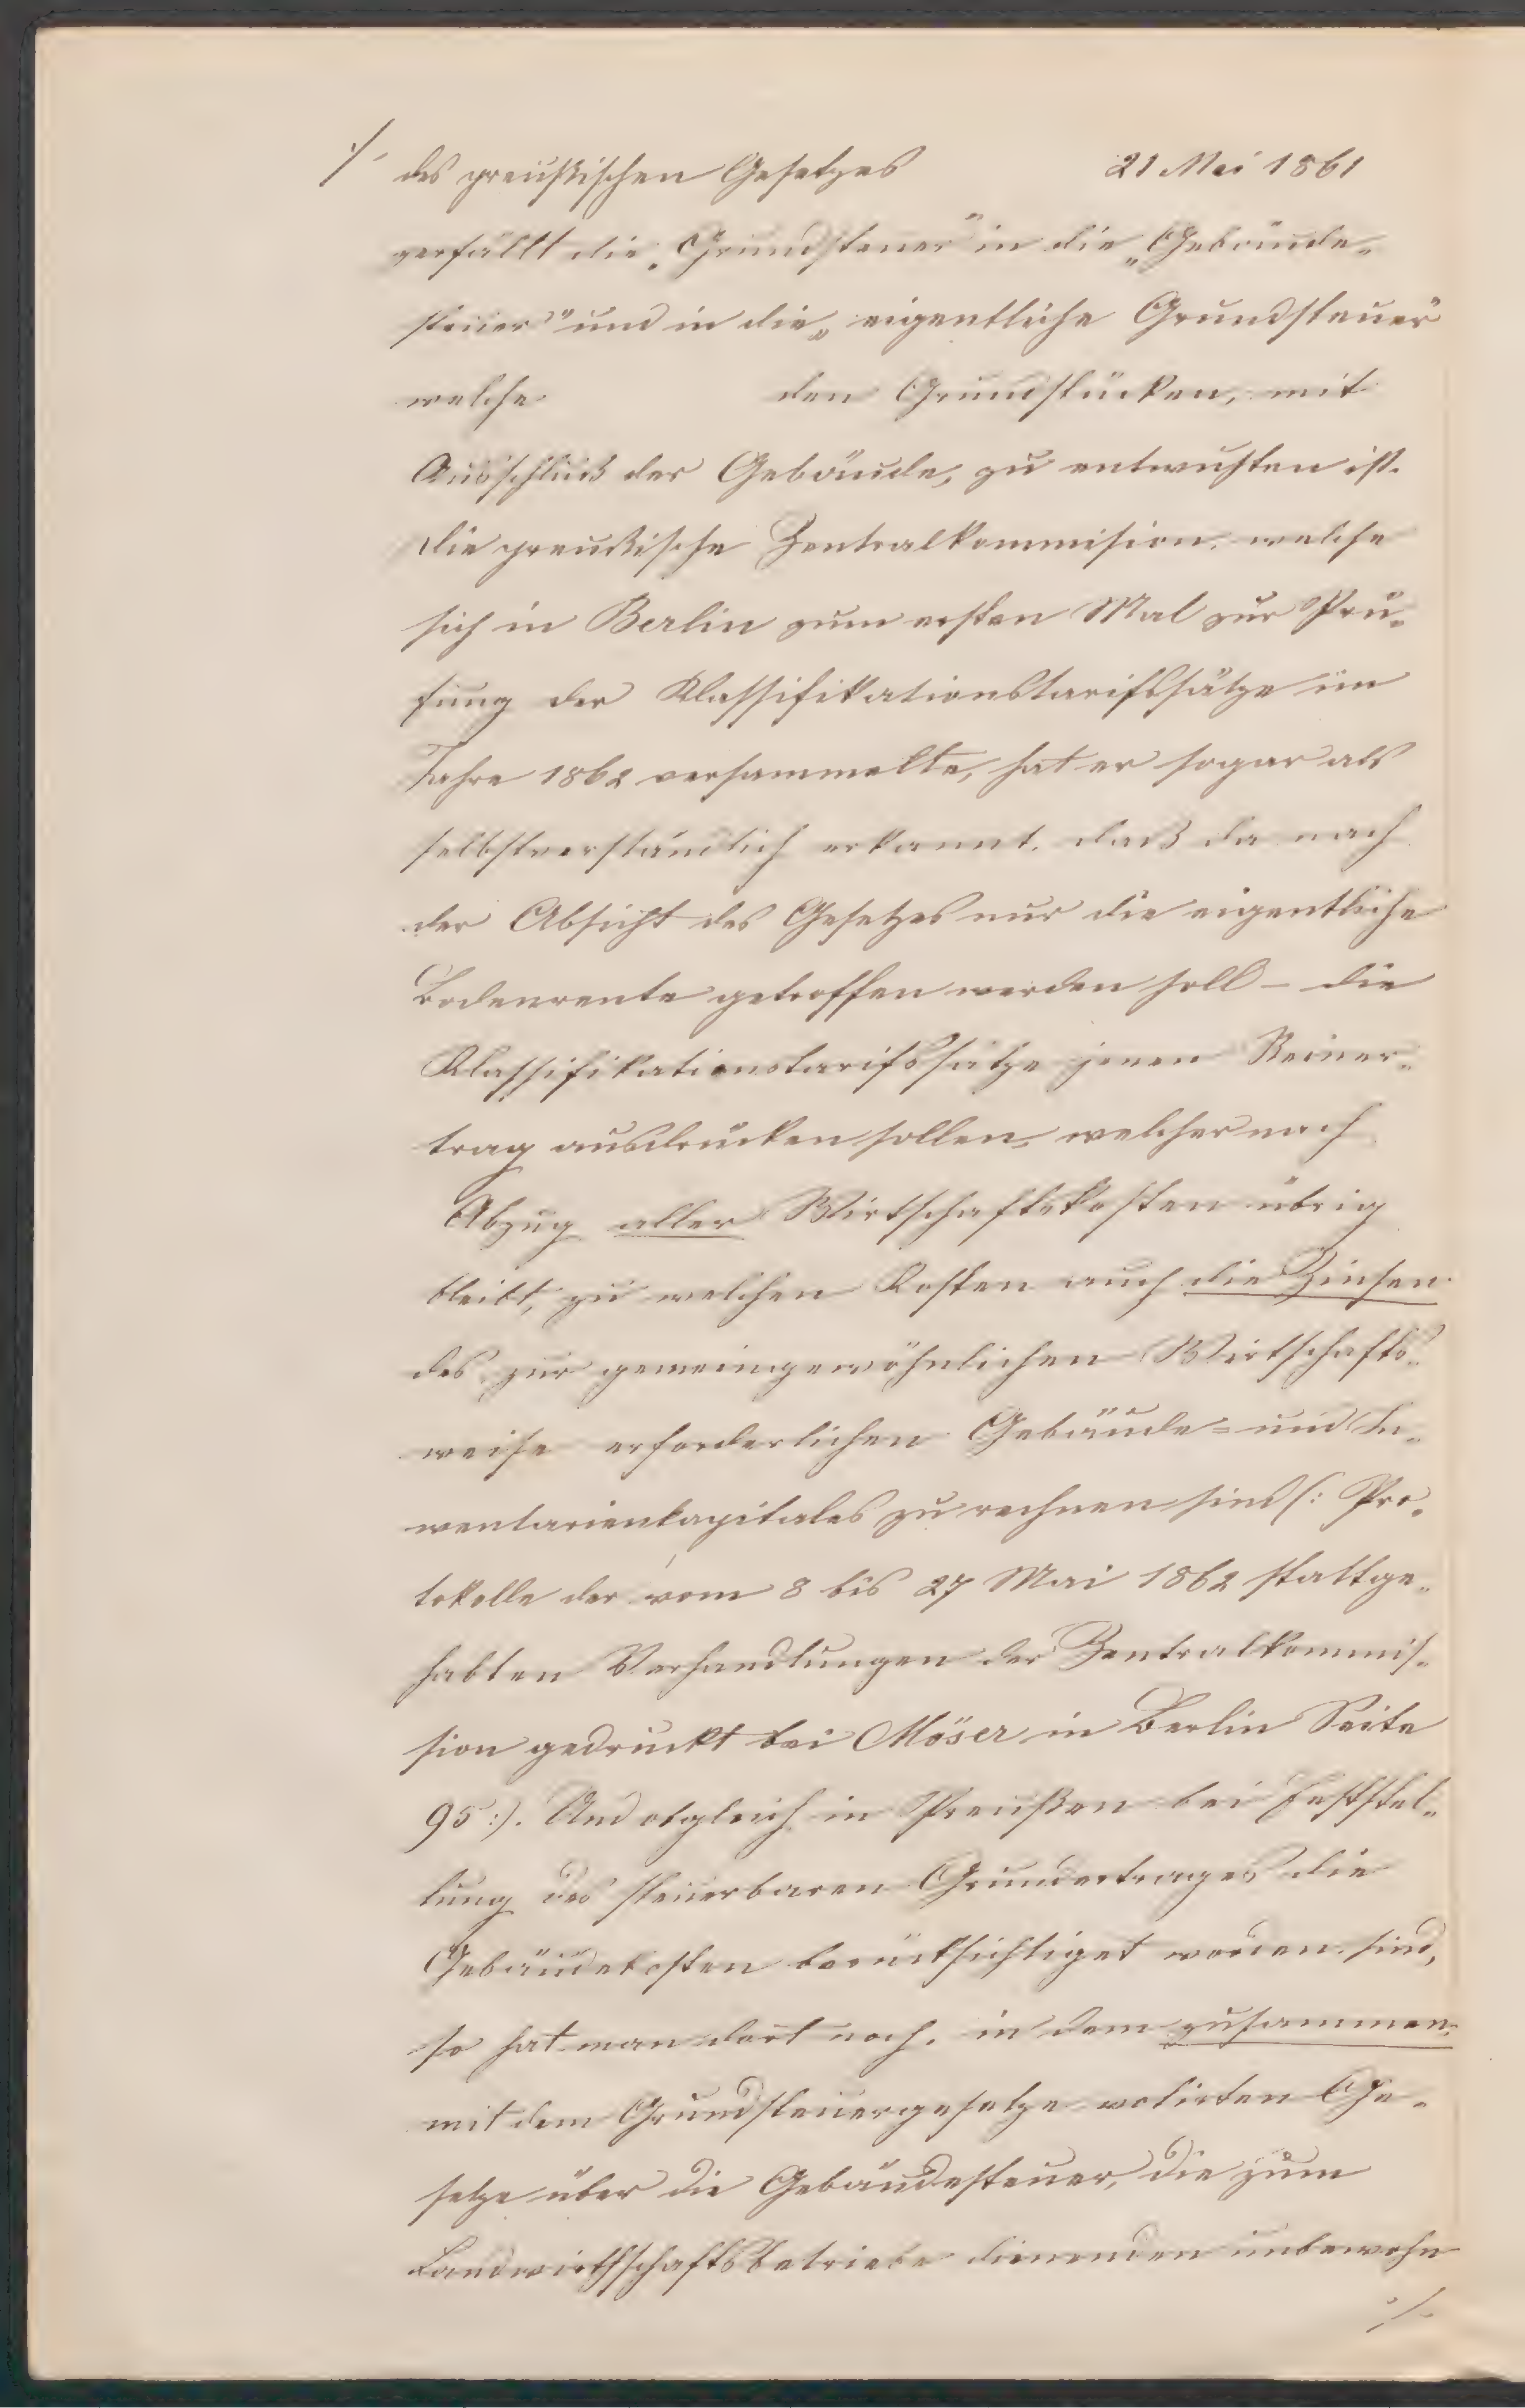 ·/· des preußischen Gesetzes 21 Mai 1861
zerfällt die „Grundsteuer" in die „Gebäude-
steuer" und in die „eigentliche Grundsteuer"
welche den Grundstücken, mit
Ausschluß der Gebäude, zu entrichten ist.
Die preußische Zentralkommision, welche
sich in Berlin zum ersten Mal zur Prü-
fung der Klassifikationstarifssätze im
Jahre 1862 versammelte, hat es sogar als
selbstverständlich erkannt, daß da nach
der Absicht des Gesetzes nur die eigentliche
Bodenrente getroffen werden soll – die
Klassifikationstarifssätze jenen Reiner-
trag ausdrücken sollen, welcher nach
Abzug aller Wirtschaftskosten übrig
bleibt, zu welchen Kosten auch die Zinsen
des zur gemeingewöhnlichen Wirtschafts-
weise erforderlichen Gebäude- und In-
ventarienkapitales zu rechnen sind (: Pro-
tokolle der vom 8 bis 27 Mai 1862 stattge-
habten Verhandlungen der Zentralkommis-
sion gedruckt bei Möser in Berlin Seite
95 :). Und obgleich in Preußen bei Feststel-
lung des steuerbaren Grundertrages die
Gebäudekosten berücksichtiget worden sind,
so hat man dort noch, in dem zusammen
mit dem Grundsteuergesetze votirten Ge-
setze über die Gebäudesteuer, die zum
Landwirthschaftsbetriebe dienenden unbewohn
·/·